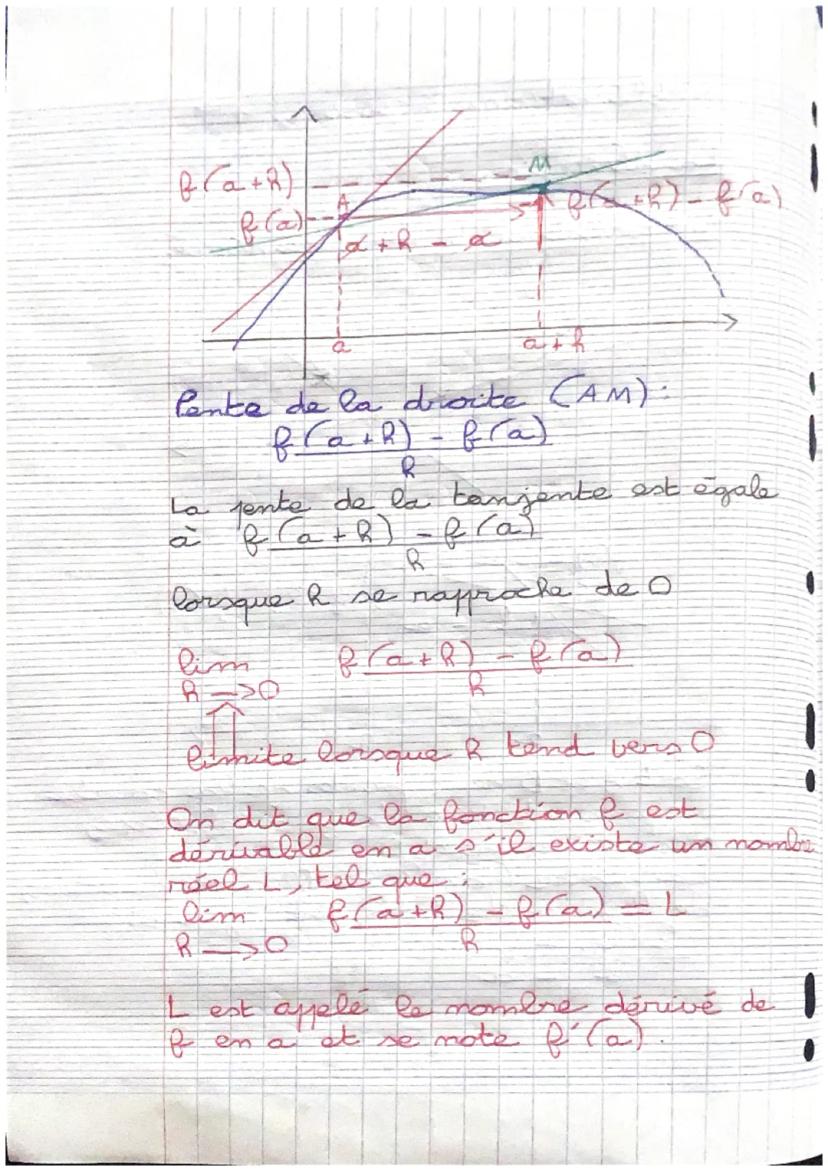 M
f(a+h)
A
f(a+h) - f(a)
f(a)
a + h - a
a
a + h
Pente de la droite (AM) :
f(a+h) - f(a)
h
La pente de la tanjente est égale
à f(a+h) - f(a)
h
lorsque h se rapproche de 0
lim f(a+h) - f(a)
h → 0 h
limite lorsque h tend vers 0
On dit que la fonction f est
dérivable en a s'il existe un nombre
réel L, tel que :
lim f(a+h) - f(a) = L
h → 0 h
L est appelé le nombre dérivé de
f en a et se note f'(a).